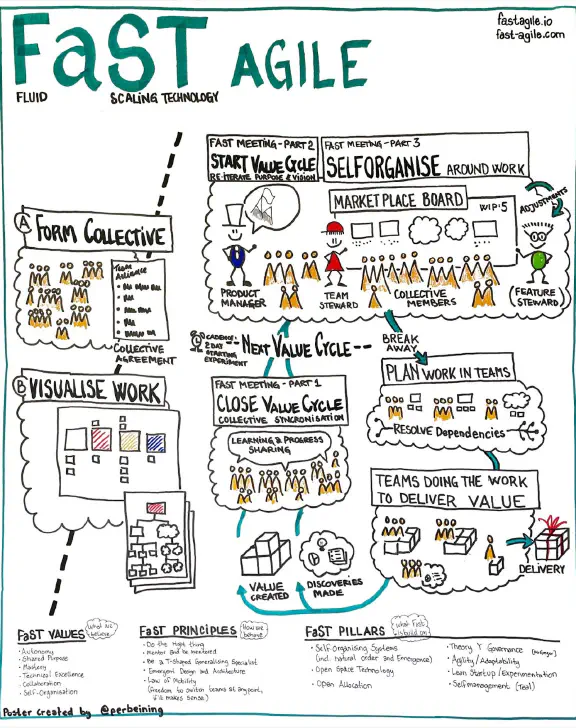 FaST AGILE
fastagile.io
fast-agile.com
FLUID
SCALING TECHNOLOGY
FAST MEETING - PART 2
START VALUE CYCLE
RE-ITERATE PURPOSE & VISION
FAST MEETING - PART 3
SELFORGANISE AROUND WORK
MARKETPLACE BOARD
WIP:5
ADJUSTMENTS
PRODUCT
MANAGER
TEAM
STEWARD
COLLECTIVE
MEMBERS
FEATURE
STEWARD
A FORM COLLECTIVE
TEAM
ALLIANCE
COLLECTIVE
AGREEMENT
B VISUALISE WORK
CADENCE:
2 DAY
STARTING
EXPERIMENT
NEXT VALUE CYCLE
BREAK
AWAY
PLAN WORK IN TEAMS
RESOLVE DEPENDENCIES
FAST MEETING - PART 1
CLOSE VALUE CYCLE
COLLECTIVE SYNCRONISATION
LEARNING & PROGRESS
SHARING
TEAMS DOING THE WORK
TO DELIVER VALUE
DELIVERY
VALUE
CREATED
DISCOVERIES
MADE
FaST VALUES
What we
believe
• Autonomy
• Shared Purpose
• Mastery
• Technical Excellence
• Collaboration
• Self-Organisation
FaST PRINCIPLES
How we
behave
• Do the right thing
• Mentor and be mentored
• Be a T-Shaped Generalising Specialist
• Emergent Design and Architecture
• Law of Mobility
(freedom to switch teams at any point,
if it makes sense)
FaST PILLARS
what FaST
is build on
• Self-Organising Systems
(incl. natural order and Emergence)
• Open Space Technology
• Open Allocation
• Theory Y Governance
• Agility/Adaptability
• Lean Startup/Experimentation
• Selfmanagement (Teal)
Poster created by @perbeining